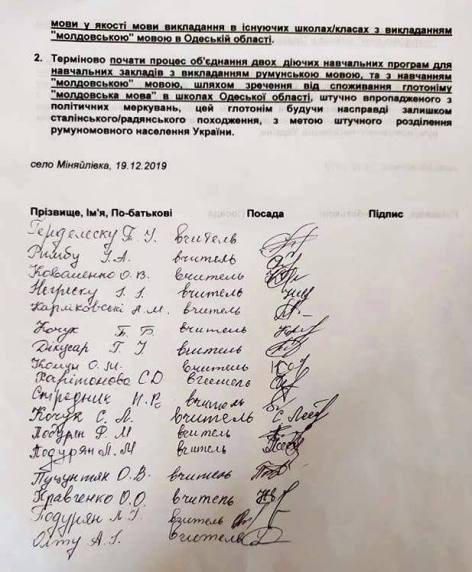 мови у якості мови викладання в існуючих школах/класах з викладанням
"молдовською" мовою в Одеській області.
2. Терміново почати процес об'єднання двох діючих навчальних програм для
навчальних закладів з викладанням румунською мовою, та з навчанням
"молдовською" мовою, шляхом зречення від споживання глотоніму
"молдовська мова" в школах Одеської області, штучно впропадженого з
політичних меркувань, цей глотонім будучи насправді залишком
сталінського/радянського походження, з метою штучного розділення
румуномовного населення України.
село Міняйлівка, 19.12.2019
Прізвище, Ім'я, По-батькові Посада Підпис
вчитель
Римбу І.А. вчитель
Коваленко О.В. вчитель
Негреску І.І. вчитель
А.М. вчитель
Кочук Г.Б. вчитель
Дікусар Г.І вчитель
О.М. вчитель
Харітонова С.D вчитель
вчитель
Кочук С.А. вчитель
Подурян Ф.М вчитель
Подурян Л.М вчитель
Пуцунтян О.В. вчитель
Кравченко О.О. вчитель
Подурян Л.І. вчитель
Олту А.І. вчитель